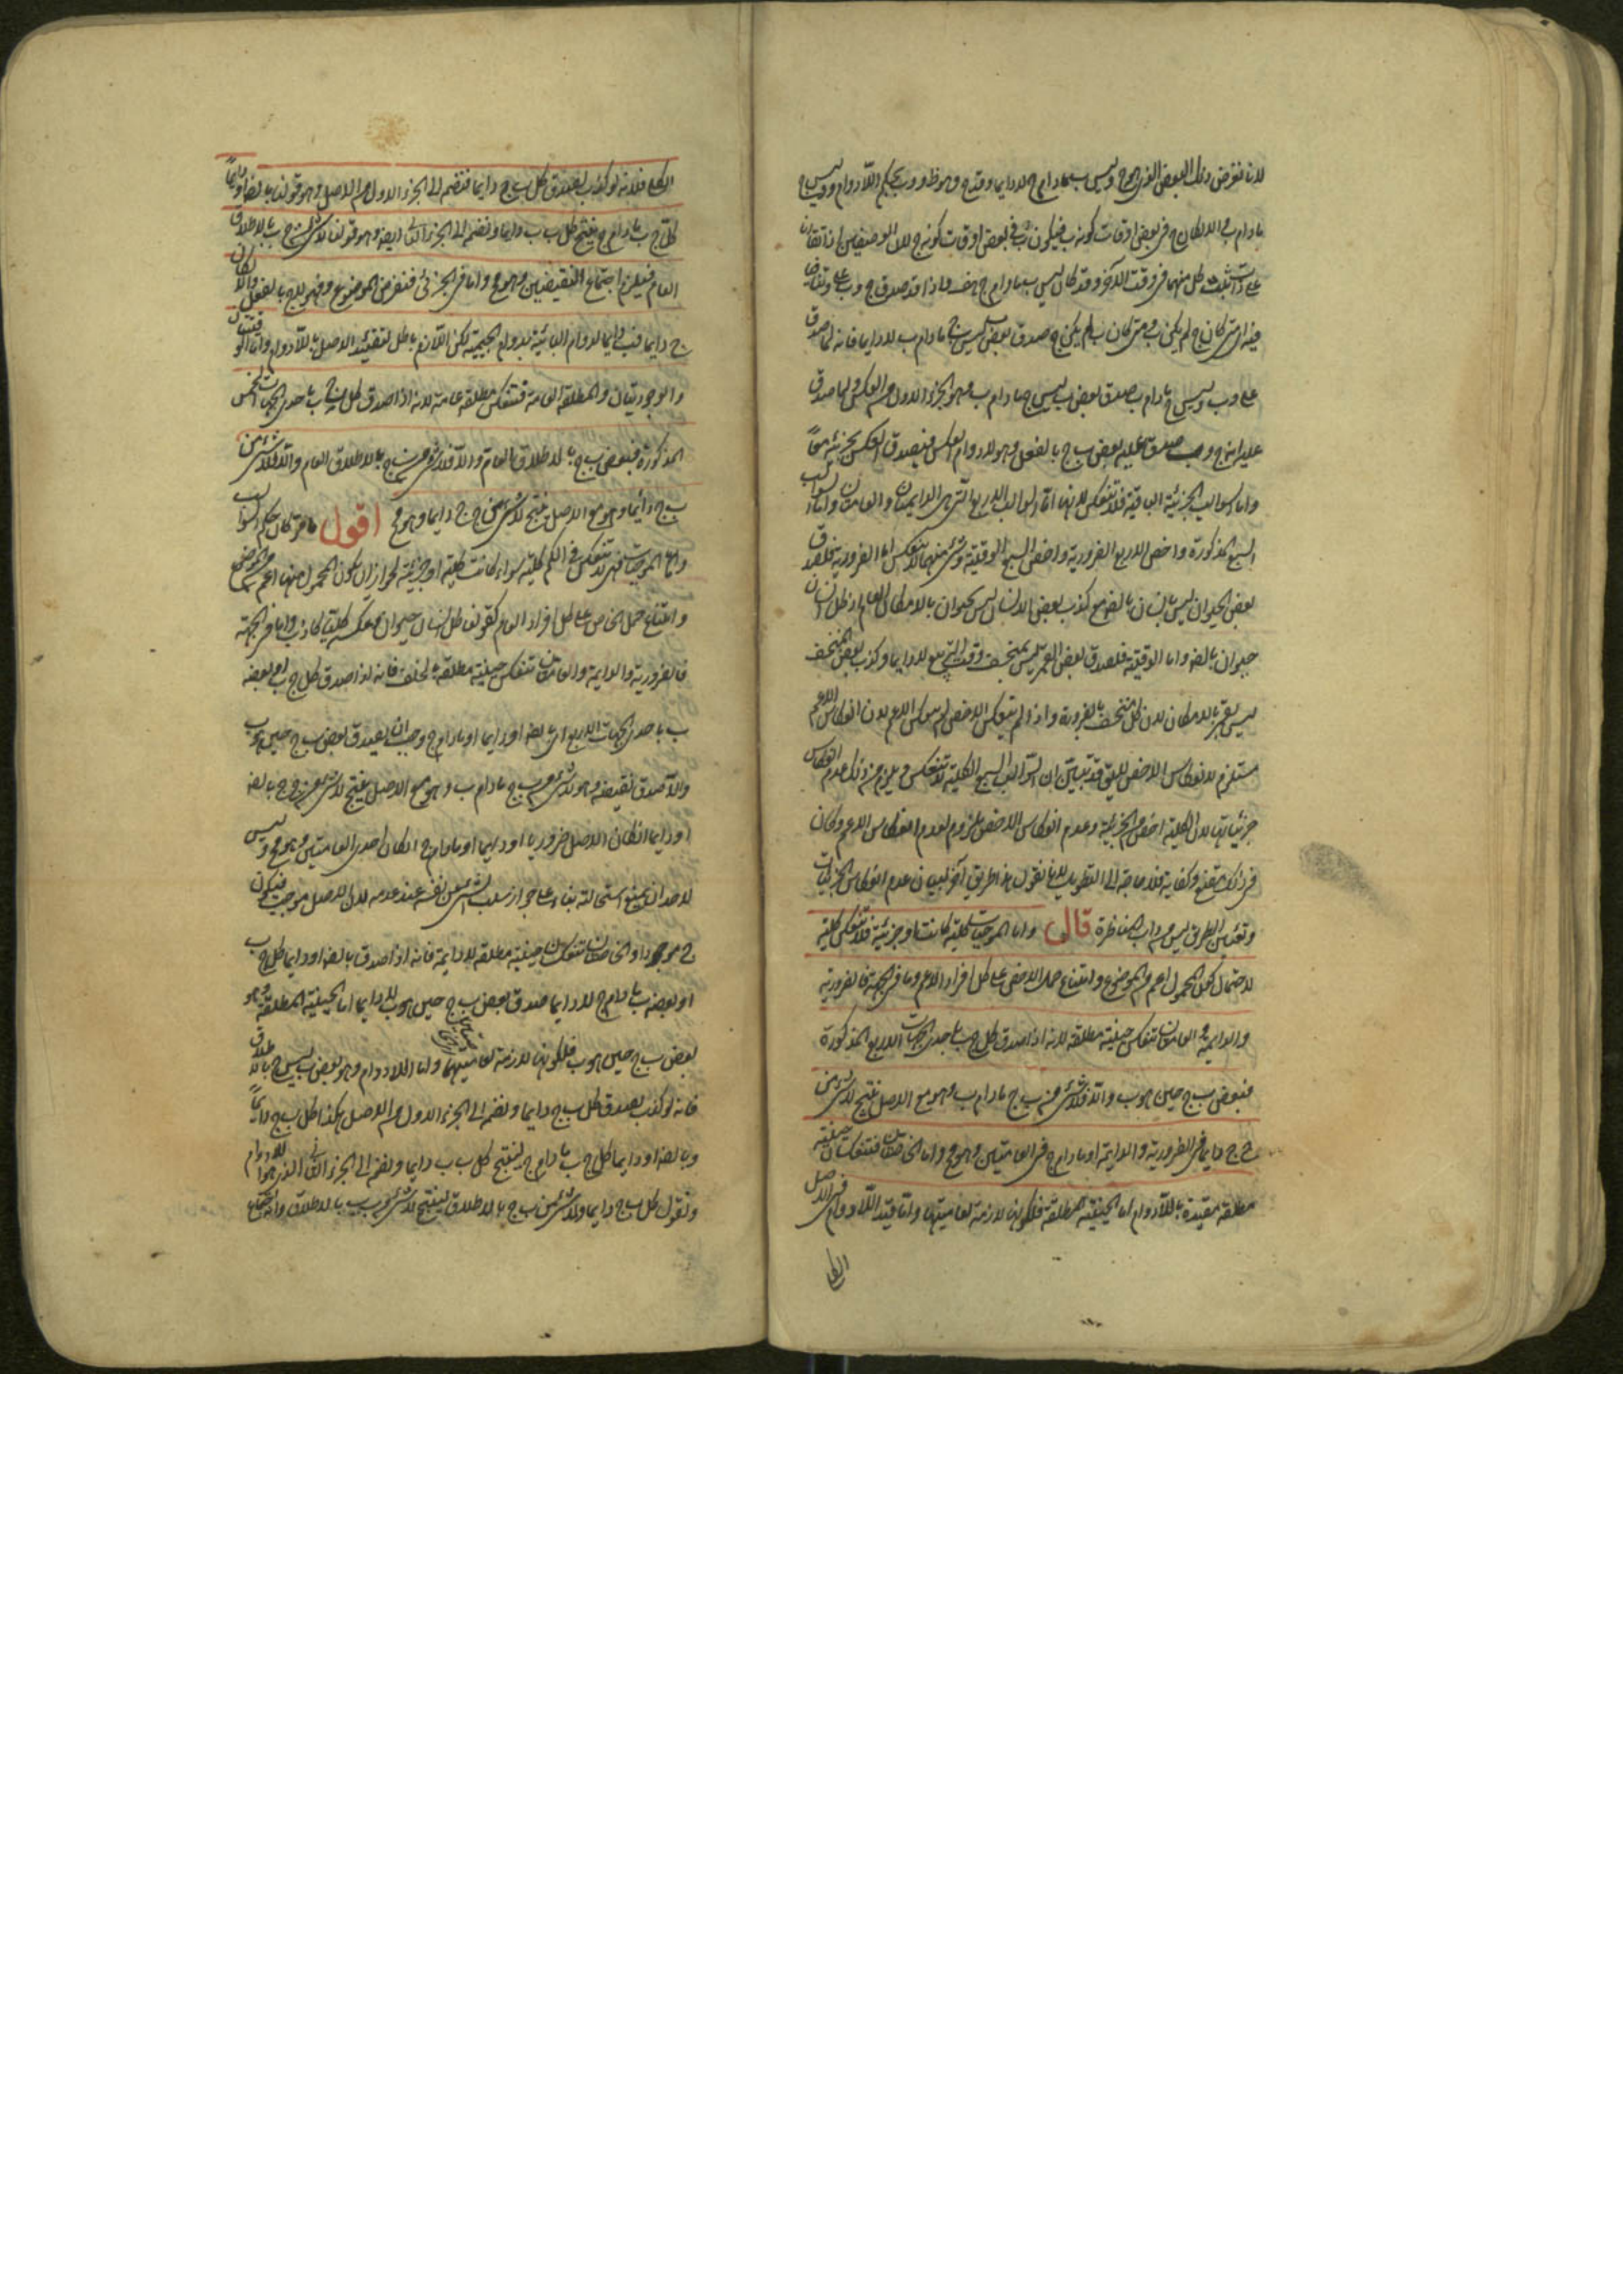 لانا نفرض ذلك البعض الذى هو ج وليس ب مادام ج لا دايما د فد ج وهو ظ و د ب بحكم اللادوام و د ليس ج
مادام ب والا لكان ج فى بعض اوقات كونه ب فيكون ب فى بعض اوقات كونه ج لان الوصفين اذا تقارنا
على ذات يثبت كل منهما فى وقت الاخر وقد كان ليس ب مادام ج هف واذا قد صدق ج و ب على د وتنافيا
فيه اى متى كان ج لم يكن ب ومتى كان ب لم يكن ج صدق بعض ب ليس ج مادام ب لا دايما فانه لما صدق
على د ب وليس ج مادام ب صدق بعض ب ليس ج مادام ب وهو الجزء الاول من العكس ولما صدق
عليه انه ج و ب صدق عليه بعض ب ج بالفعل وهو لا دوام العكس فيصدق العكس بجزئيه معا
واما السوالب الجزئية الباقية فلا تنعكس لانها اما السوالب الاربع التى هى الدايمتان والعامتان واما السوالب
السبع المذكورة واخص الاربع الضرورية واخص السبع الوقتية وشئ منهما لا تنعكس اما الضرورية فلصدق
بعض الحيوان ليس بانسان بالضه مع كذب بعض الانسان ليس بحيوان بالامكان العام اذ كل انسان
حيوان بالضه واما الوقتية فلصدق بعض القمر ليس بمنخسف وقت التربيع لا دايما وكذب بعض المنخسف
ليس بقمر بالامكان لان كل منخسف قمر بالضرورة واذا لم تنعكس الاخص لم ينعكس الاعم لان انعكاس الاعم
مستلزم لانعكاس الاخص لا يق قد تبين ان السوالب السبع الكلية لا تنعكس ويلزم من ذلك عدم انعكاس
جزئياتها لان الكلية اخص من الجزئية وعدم انعكاس الاخص ملزوم لعدم انعكاس الاعم وكان
فى ذلك مقنع وكفاية فلا حاجة الى التطويل لانا نقول هذا طريق آخر لبيان عدم انعكاس الجزئيات
وتعيين الطريق ليس من داب المناظرة قال واما الموجبات كلية كانت او جزئية فلا تنعكس كلية
لاحتمال كون المحمول اعم من الموضوع وامتناع حمل الاخص على كل افراد الاعم واما فى الجهة فالضرورية
والدايمة والعامتان تنعكس حينية مطلقة لانه اذا صدق كل ج ب باحدى الجهات الاربع المذكورة
فبعض ب ج حين هو ب والا فلا شئ من ب ج مادام ب وهو مع الاصل ينتج لا شئ من
ج ج دايما فى الضرورية والدايمة او مادام ج فى العامتين وهو مح واما الخاصتان فتنعكسان حينية
مطلقة مقيدة باللادوام اما الحينية المطلقة فلكونها لازمة لعاميتهما واما قيد اللادوام فى الاصل
الكلى
الكلى فلانه لو كذب لصدق كل ب ج دايما فنضمه الى الجزء الاول من الاصل وهو قولنا بالضه او دايما
كل ج ب مادام ج ينتج كل ب ب دايما ونضمه الى الجزء الثانى ايضه وهو قولنا لا شئ من ج ب بالاطلاق
العام فيلزم اجتماع النقيضين وهو مح واما فى الجزئى فنفرض الموضوع د فهو ليس ج بالفعل والا لكان
ج دايما فب دايما لدوام البائية بدوام الجيمية لكن اللازم باطل لتقييد الاصل باللادوام واما الوقتيتان
والوجوديتان والمطلقة العامة فتنعكس مطلقة عامة لانه اذا صدق كل ج ب باحدى الجهات الخمس
المذكورة فبعض ب ج بالاطلاق العام والا فلا شئ من ب ج بالاطلاق العام والا فلا شئ من
ب ج دائما وهو مع الاصل ينتج لا شئ من ج ج دايما وهو مح اقول ما مر كان حكم السوالب
واما الموجبات فهى لا تنعكس فى الكم كلية سواء كانت كلية او جزئية لجواز ان يكون المحمول منها اعم من الموضوع
وامتناع حمل الخاص على كل افراد العام كقولنا كل انسان حيوان وعكسه كليا كاذب واما فى الجهة
فالضرورية والدايمة والعامتان تنعكس حينية مطلقة بالخلف فانه اذا صدق كل ج ب او بعضه
ب باحدى الجهات الاربع اى بالضه او دايما او مادام ج وجب ان يصدق بعض ب ج حين هو ب
والا لصدق نقيضه وهو لا شئ من ب ج مادام ب وهو مع الاصل ينتج لا شئ من ج ج بالضه
او دايما ان كان الاصل ضروريا او دايما او مادام ج ان كان احدى العامتين وهو مح وليس
لاحد ان يمنع استحالته بناء على جواز سلب الشئ عن نفسه عند عدمه لان الاصل موجب فيكون
ج موجودا والخاصتان تنعكسان حينية مطلقة لا دايمة فانه اذا صدق بالضه او دايما كل ج ب
او بعضه ب مادام ج لا دايما صدق بعض ب ج حين هو ب لا دايما اما الحينية المطلقة وهو
بعض ب ج حين هو ب فلكونها لازمة لعاميتهما واما اللادوام وهو بعض ب ليس ج بالاطلاق
فانه لو كذب لصدق كل ب ج دايما ونضمه الى الجزء الاول من الاصل هكذا كل ب ج دايما
وبالضه او دايما كل ج ب مادام ج لينتج كل ب ب دايما ونضمه الى الجزء الثانى الذى هو اللادوام
ونقول كل ب ج دايما ولا شئ من ج ب بالاطلاق لينتج لا شئ من ب ب بالاطلاق واجتماع